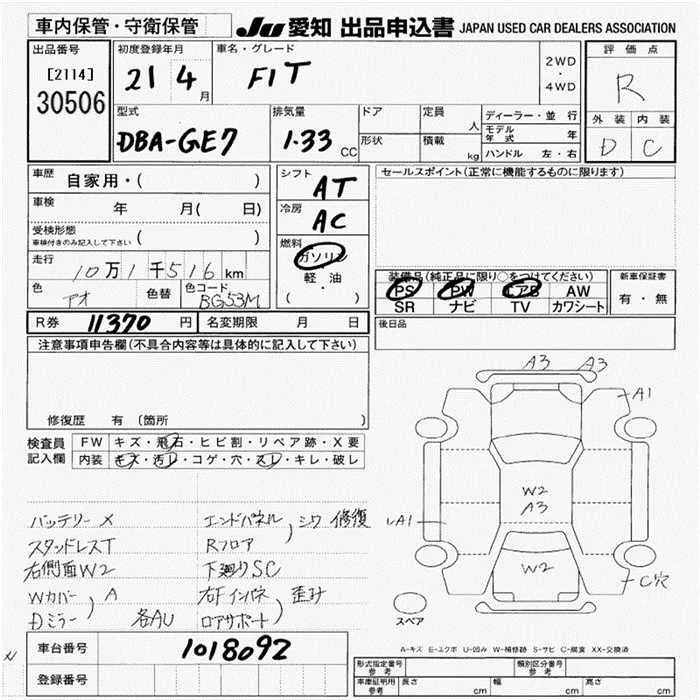 車内保管・守衛保管
JU 愛知 出品申込書 JAPAN USED CAR DEALERS ASSOCIATION
出品番号
[2114]
30506
初度登録年月
21 4 月
車名・グレード
FIT
2WD
・
4WD
評価点
R
外装 内装
D C
型式
DBA-GE7
排気量
1.33 cc
ドア
形状
定員 人
積載 kg
ディーラー・並行
モデル年式 年
ハンドル 左・右
車歴 自家用・( )
車検 年 月( 日)
受検形態
車検付きのみ記入して下さい ( )
走行 10万1千516km
色 アオ 色替 色コード BG53M
シフト AT
冷房 AC
燃料
ガソリン
軽・油
( ・ )
セールスポイント(正常に機能するものに限ります)
装備品(純正品に限り○をつけてください)
PS PW エアB AW
SR ナビ TV カワシート
新車保証書
有・無
R券 11370 円 名変期限 月 日
後日品
注意事項申告欄(不具合内容等は具体的に記入して下さい)
修復歴 有 (箇所 )
検査員
記入欄
FW キズ・飛石・ヒビ割・リペア跡・X要
内装 キズ・汚レ・コゲ・穴・スレ・キレ・破レ
バッテリー× エンドパネル シワ 修復
スタンドレスT Rフロア
右側面W2 下廻りSC
Wカバー A 右Fインパネ 歪み
Dミラー 各AU ロアサポート
A3 A3
A1
W2
A3
LA1
W2
C穴
スペア
A-キズ E-エクボ U-凹み W-補修跡 S-サビ C-腐食 XX-交換済
車台番号 1018092
登録番号
型式指定番号 参考
類別区分番号 参考
車庫証明用 参考 長さ cm 幅 cm 高さ cm